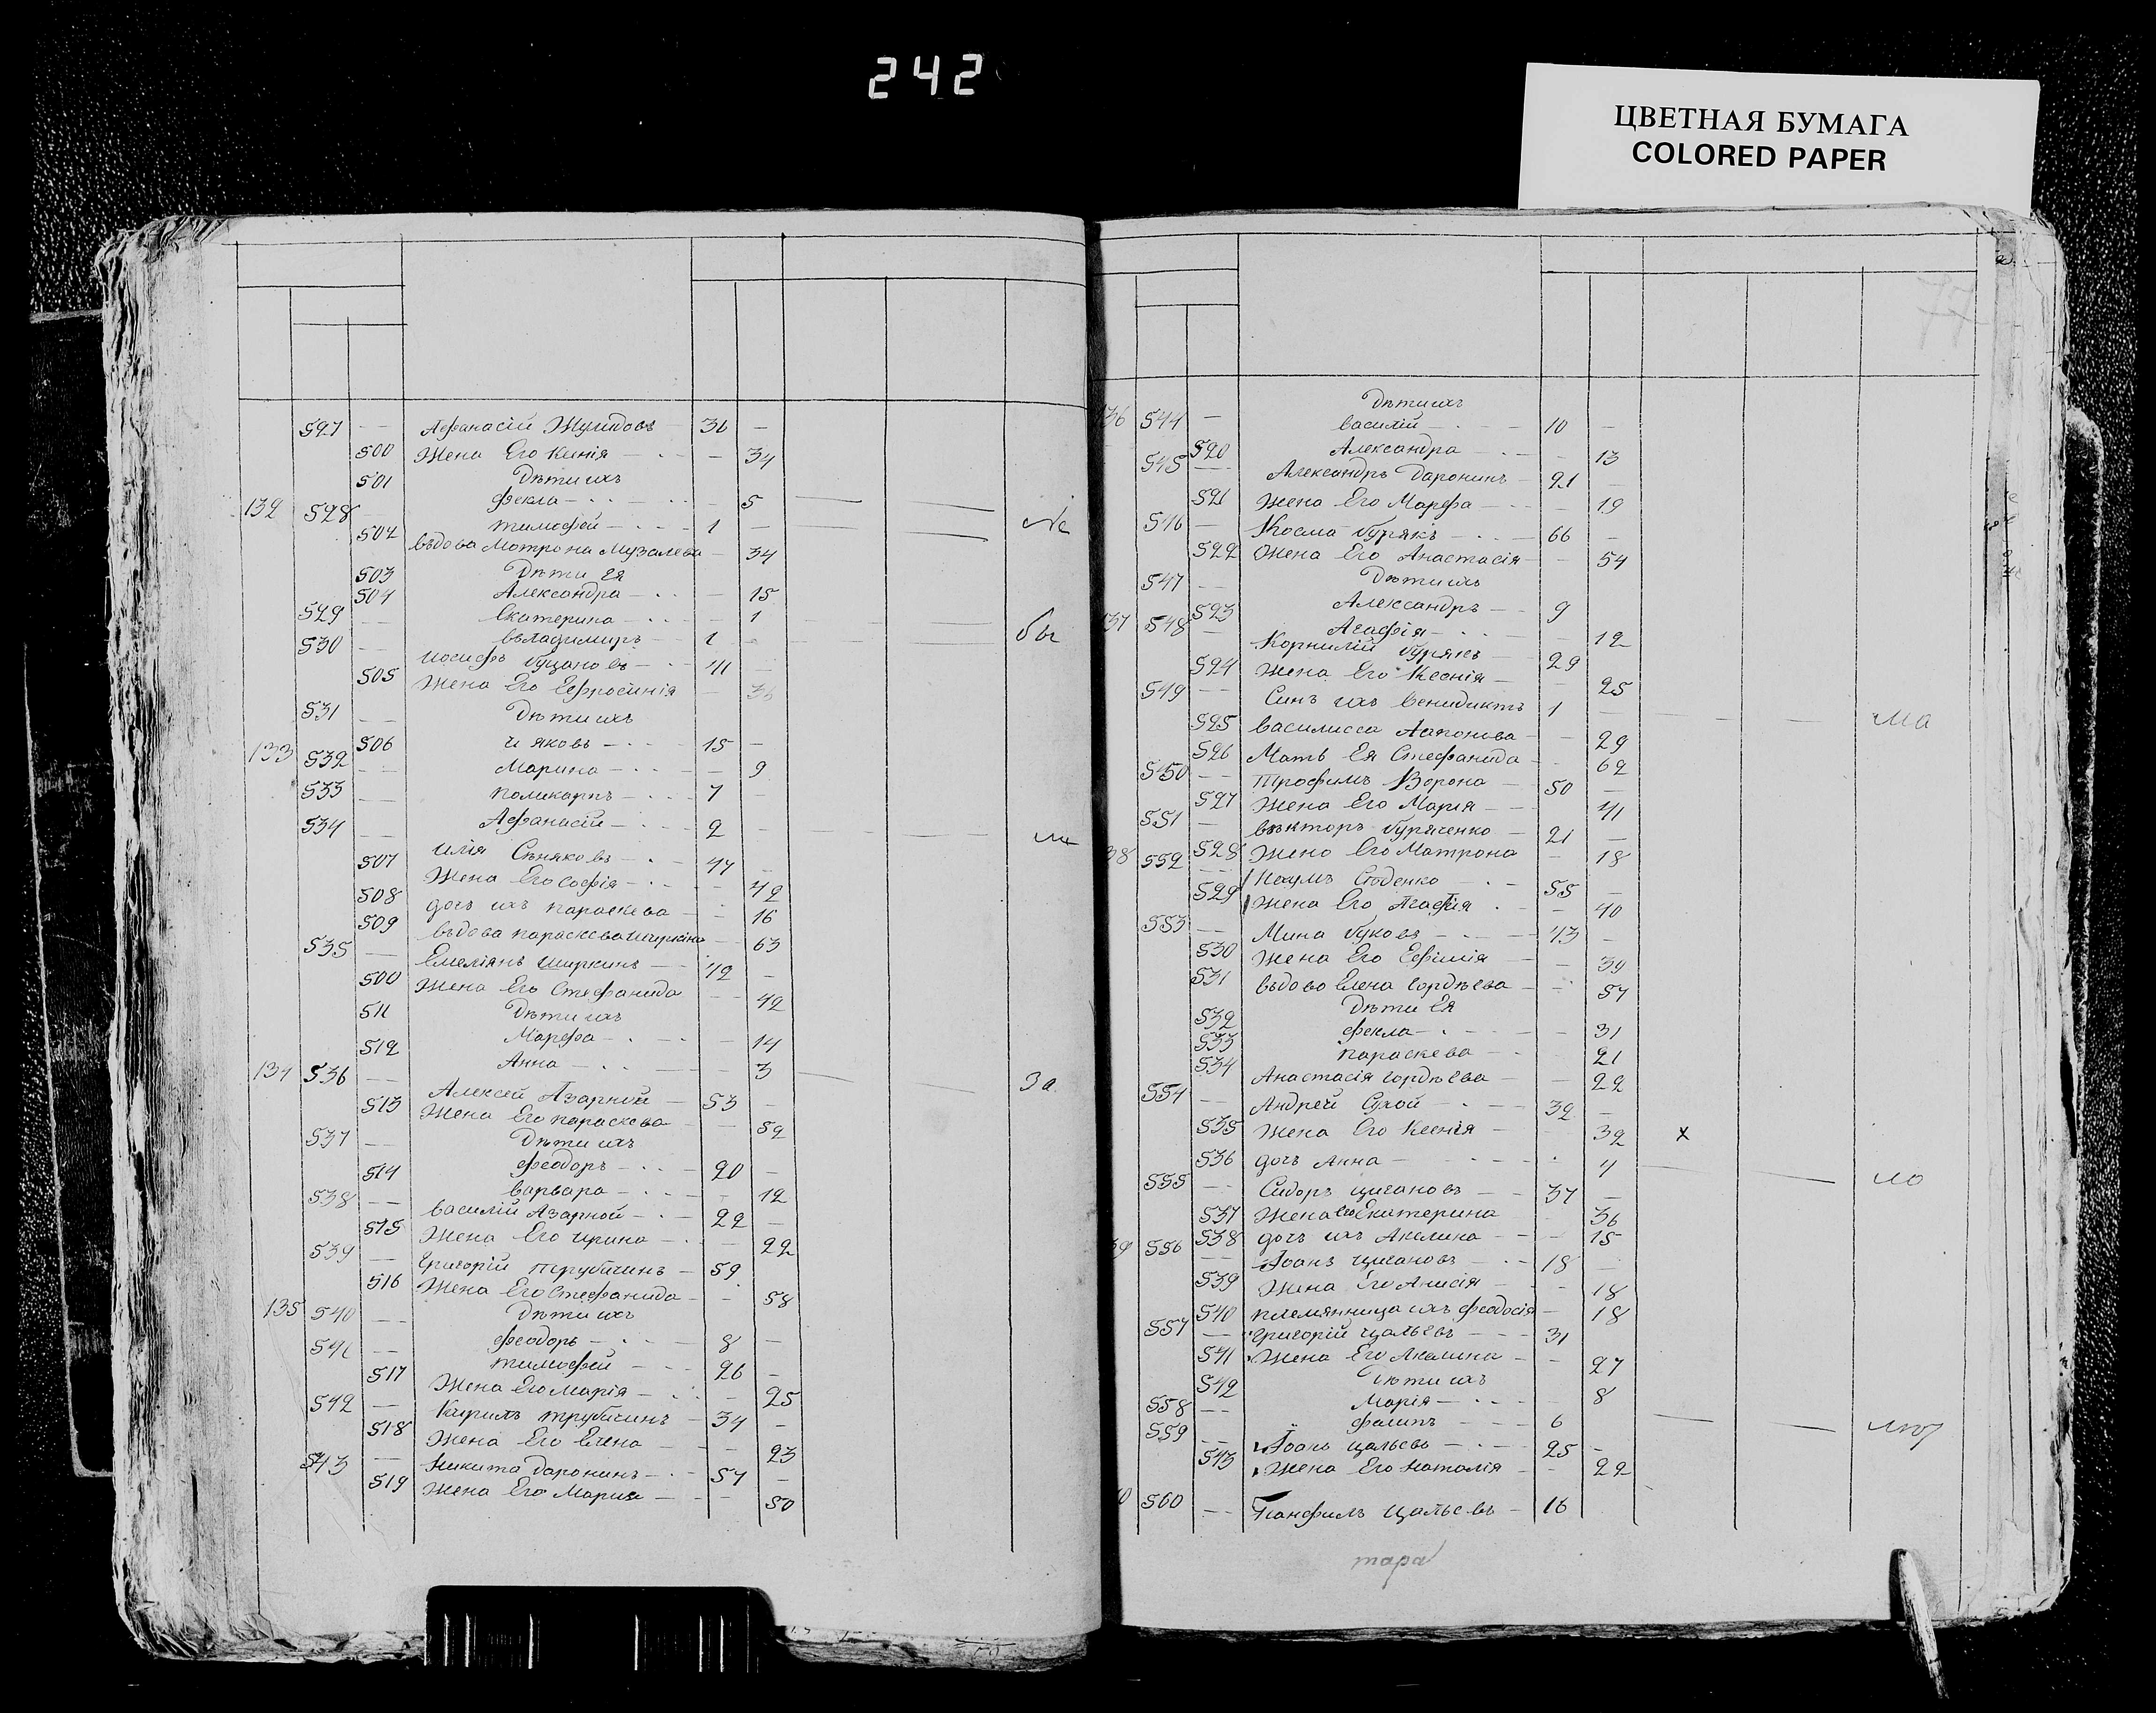 242
ЦВЕТНАЯ БУМАГА
COLORED PAPER
527 — Афанасій 36 —
500 Жена Его Кинія — — 34
501 Дѣти ихъ
Фекла — — 5
132 528 Тимофей — 1 —
502 Вѣдова Матрона Музалева — 34
503 Дѣти Ея
504 Александра — — 15
529 Екатерина — — 1
530 Вѣладимиръ — 1
Иосифъ Буцановъ — 41 —
505 Жена Его Ефросинія — 36
531 Дѣти ихъ
506 Ияковъ — 15 —
133 532 Марина — — 9
533 Поликарпъ — 7 —
534 Афанасій — 2 —
Илія Сѣняковъ — 47 —
507 Жена Его Софія — — 42
508 дочь ихъ Параскева — 16
509 Вѣдова Параскева Ширкина — 63
535 Емеліянъ Ширкинъ — 42 —
500 Жена Его Стефанида — 42
511 Дѣти ихъ
512 Марфа — — 14
Анна — — 3
134 536 За
Алексей Азарной — 53 —
513 Жена Его Параскева — 52
537 Дѣти ихъ
514 Феодоръ — 20 —
538 Варвара — — 12
Василій Азарной — 22 —
515 Жена Его Ирина — — 22
539 Григорій Трубичинъ — 59
516 Жена Его Стефанида — — 58
135 540 Дѣти ихъ
541 Феодоръ — 8 —
Тимофей — 26 —
517 Жена Его Марія — — 25
542 Кирилъ Трубичинъ — 34 —
518 Жена Его Елена — — 23
543 Никита Даронинъ — 57 —
519 Жена Его Мария — — 50
77
Дѣти ихъ
136 544 — Василій — 10 —
520 Александра — — 13
545 Александръ Даронинъ — 21 —
521 Жена Его Марфа — — 19
546 — Косма Бурякъ — 66 —
522 Жена Его Анастасія — 54
547 — Дѣти ихъ
523 Александръ — 9
137 548 Агафія — — 12
Корнилій Бурякъ — 29
524 Жена Его Ксенія — 25
549 — Синъ ихъ Венидиктъ 1 — ма
525 Василисса Агапонова — — 29
526 Мать Ея Стефанида — 62
550 — Трофимъ Ворона — 50 —
527 Жена Его Марія — — 41
551 — Вѣкторъ Буряченко — 21 —
528 Жена Его Матрона — 18
38 552 Наумъ Стоденко — 55 —
529 Жена Его Агафія — 40
553 — Мина Буковъ — 43 —
530 Жена Его Ефимія — 39
531 Вѣдова Елена Гордѣева — 57
Дѣти Ея
532 Фекла — — 31
533 Параскева — 21
534 Анастасія Гордѣева — — 22
554 — Андрей Сухой — 32 —
535 Жена Его Ксенія — 32 х
536 дочь Анна — 4
555 — Сидоръ Цигановъ — 37 —
ло
537 Жена его Екатерина — 36
538 дочь ихъ Акилина — — 15
39 556 — Іоанъ Цигановъ — 18 —
539 Жена Его Анисія — 18
540 племянница ихъ Феодосія — 18
557 — Григорій Цальевъ — 31
541 Жена Его Акилина — — 27
542 Дѣти ихъ
558 — Марія — — 8
559 — Филипъ — 6
Іоанъ Цальевъ — 25 —
543 Жена Его Наталія — — 22
560 — Панфилъ Цальевъ — 16
тара